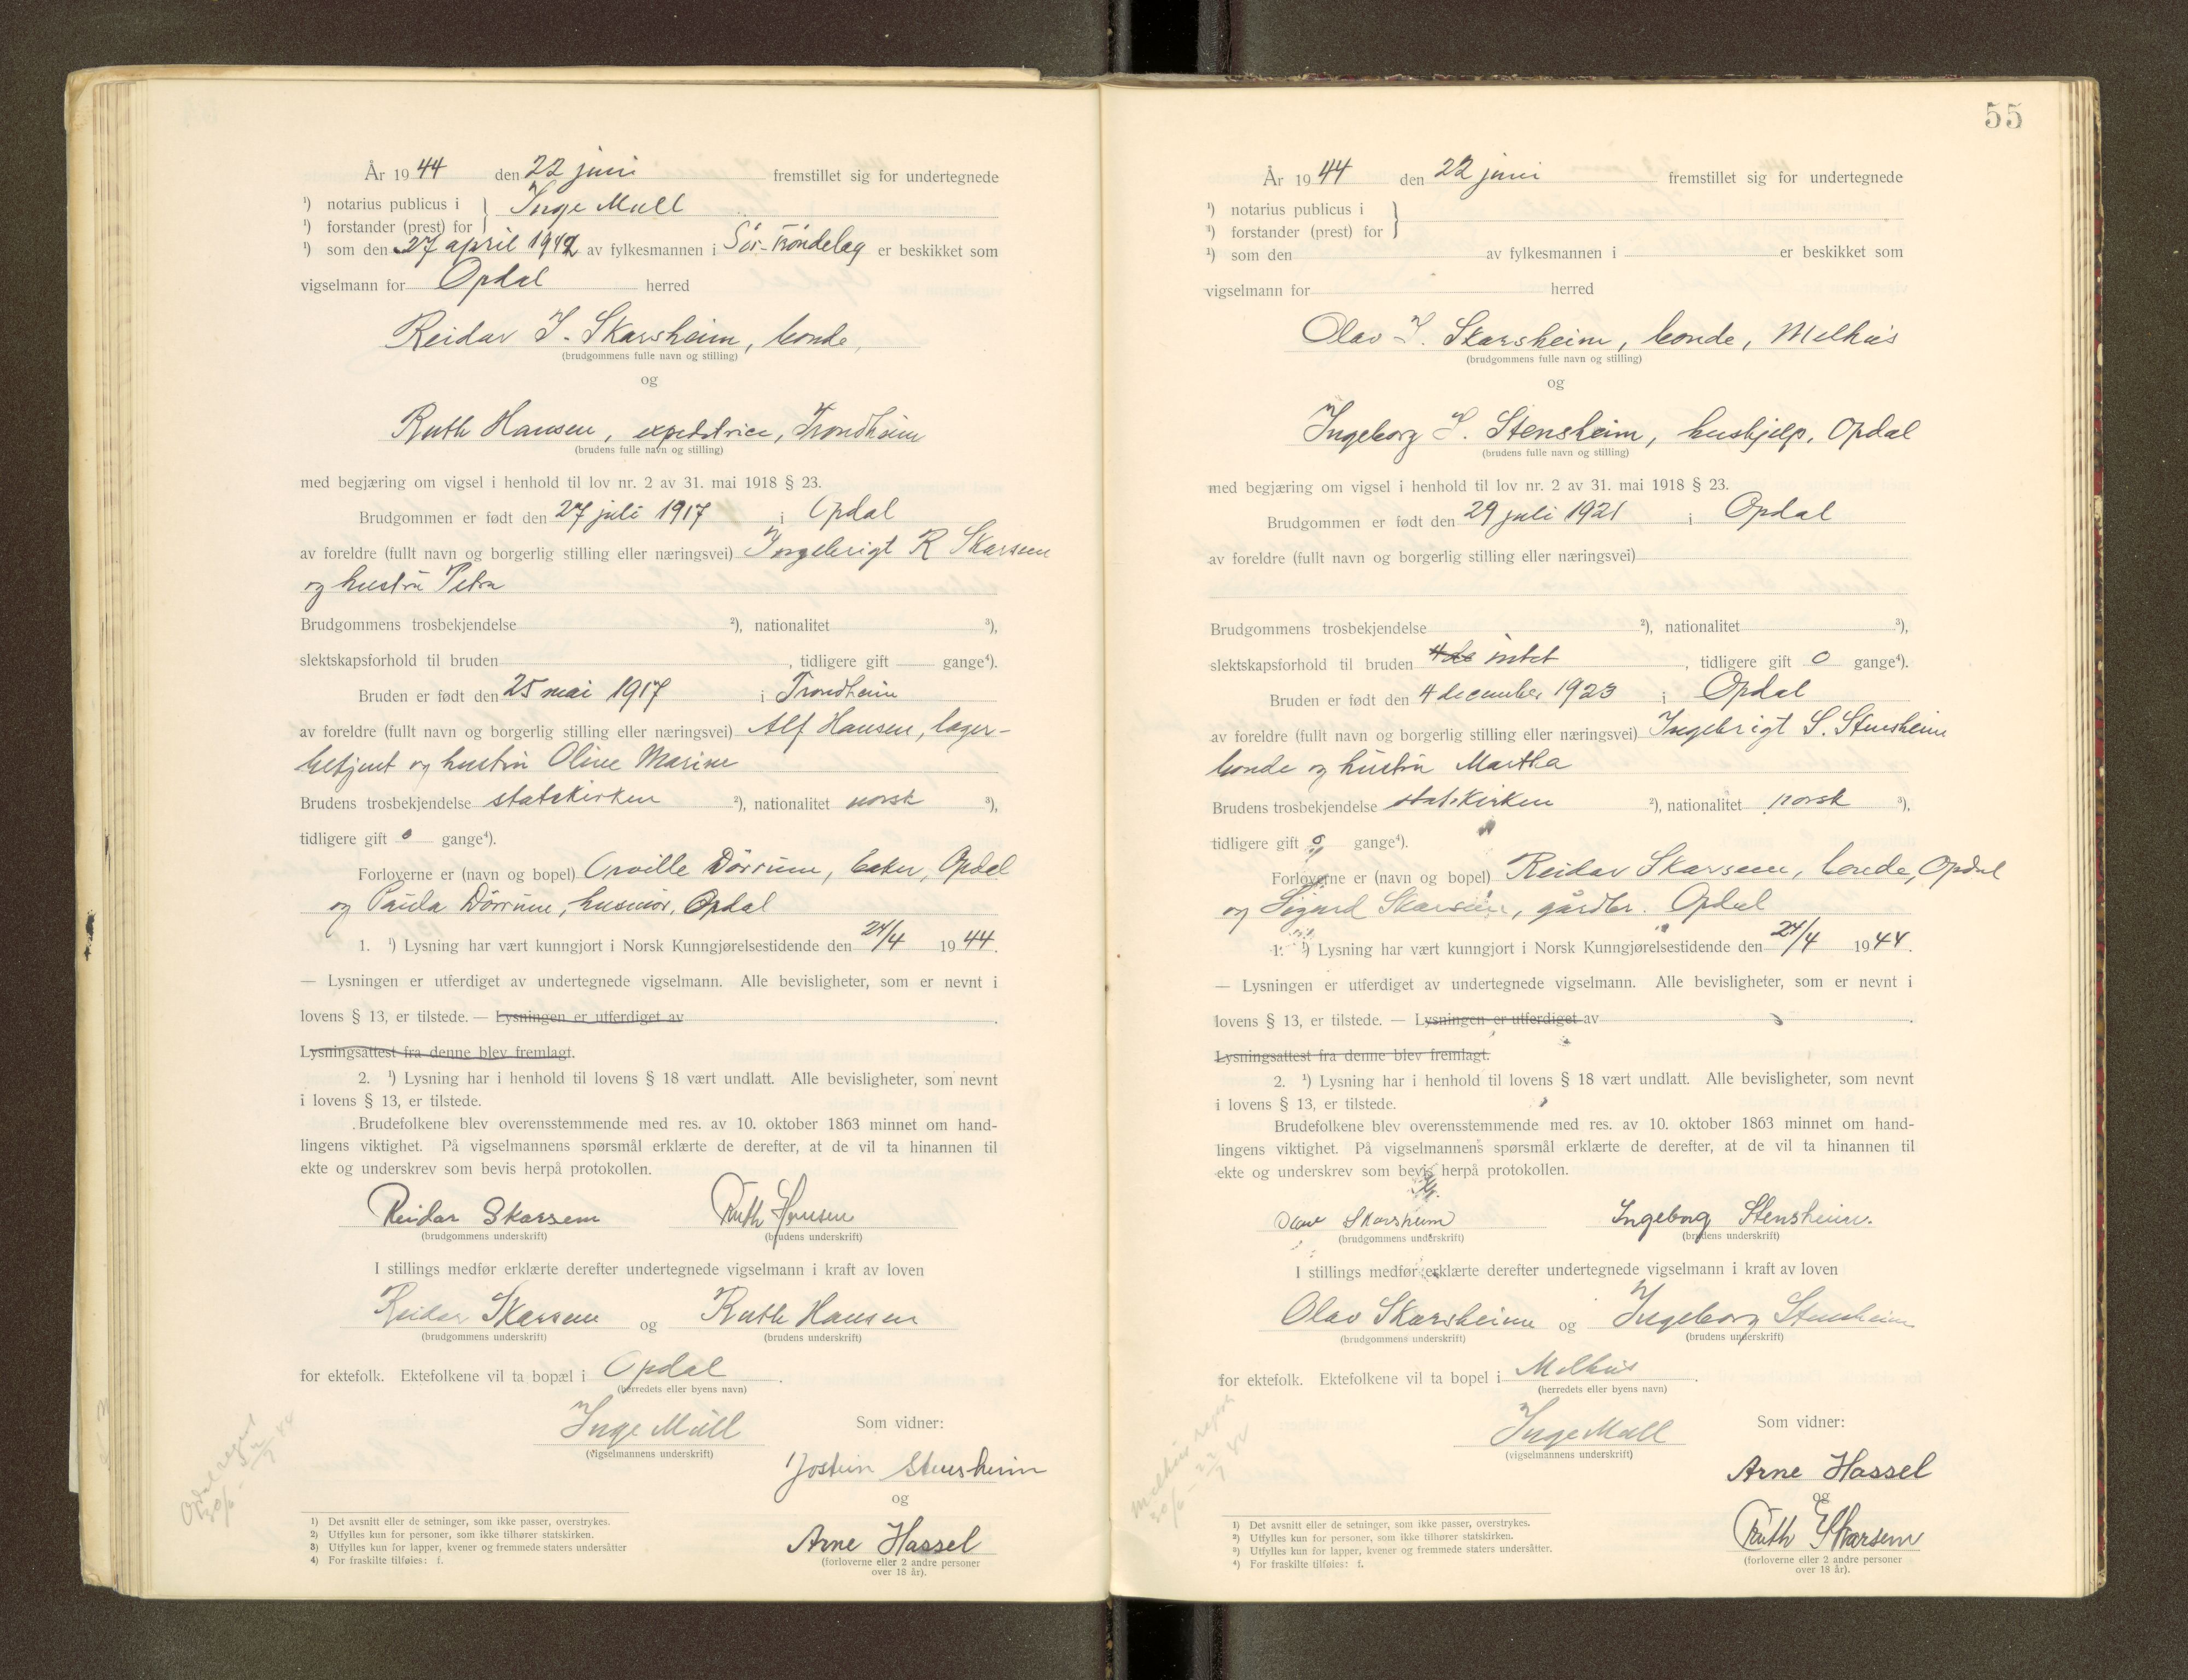 År 1944 den 22 juni fremstillet sig for undertegnede
¹) notarius publicus i } Inge Mull
¹) forstander (prest) for
¹) som den 27 april 1942 av fylkesmannen i Sør-Trøndelag er beskikket som
vigselmann for Opdal herred
Reidar I. Skarsheim, bonde,
(brudgommens fulle navn og stilling)
og
Ruth Hansen, expeditrice, Trondheim
(brudens fulle navn og stilling)
med begjæring om vigsel i henhold til lov nr. 2 av 31. mai 1918 § 23.
Brudgommen er født den 27 juli 1917 i Opdal
av foreldre (fullt navn og borgerlig stilling eller næringsvei) Ingebrigt R Skarsem
og hustru Petra
Brudgommens trosbekjendelse ²), nationalitet ³),
slektskapsforhold til bruden , tidligere gift gange⁴).
Bruden er født den 25 mai 1917 i Trondheim
av foreldre (fullt navn og borgerlig stilling eller næringsvei) Alf Hansen, lager-
betjent og hustru Oline Marine
Brudens trosbekjendelse statskirken ²), nationalitet norsk ³),
tidligere gift 0 gange⁴).
Forloverne er (navn og bopel) Orville Dörrum, baker, Opdal
og Paula Dörrum, husmor, Opdal
1. ¹) Lysning har vært kunngjort i Norsk Kunngjørelsestidende den 24/4 1944.
— Lysningen er utferdiget av undertegnede vigselmann. Alle bevisligheter, som er nevnt i
lovens § 13, er tilstede. — Lysningen er utferdiget av .
Lysningsattest fra denne blev fremlagt.
2. ¹) Lysning har i henhold til lovens § 18 vært undlatt. Alle bevisligheter, som nevnt
i lovens § 13, er tilstede.
Brudefolkene blev overensstemmende med res. av 10. oktober 1863 minnet om hand-
lingens viktighet. På vigselmannens spørsmål erklærte de derefter, at de vil ta hinannen til
ekte og underskrev som bevis herpå protokollen.
Reidar Skarsem Ruth Hansen
(brudgommens underskrift) (brudens underskrift)
I stillings medfør erklærte derefter undertegnede vigselmann i kraft av loven
Reidar Skarsem og Ruth Hansen
(brudgommens underskrift) (brudens underskrift)
for ektefolk. Ektefolkene vil ta bopæl i Opdal .
(herredets eller byens navn)
Inge Mull Som vidner:
(vigselmannens underskrift)
Jostein Stensheim
og
Arne Hassel
(forloverne eller 2 andre personer
over 18 år).
Opdal
30/6
1) Det avsnitt eller de setninger, som ikke passer, overstrykes.
2) Utfylles kun for personer, som ikke tilhører statskirken.
3) Utfylles kun for lapper, kvener og fremmede staters undersåtter
4) For fraskilte tilføies: f.
55
År 1944 den 22 juni fremstillet sig for undertegnede
¹) notarius publicus i }
¹) forstander (prest) for
¹) som den av fylkesmannen i er beskikket som
vigselmann for herred
Olav I. Skarsheim, bonde, Melhus
(brudgommens fulle navn og stilling)
og
Ingeborg I. Stensheim, hushjelp, Opdal
(brudens fulle navn og stilling)
med begjæring om vigsel i henhold til lov nr. 2 av 31. mai 1918 § 23.
Brudgommen er født den 29 juli 1921 i Opdal
av foreldre (fullt navn og borgerlig stilling eller næringsvei)
Brudgommens trosbekjendelse ²), nationalitet ³),
slektskapsforhold til bruden 4de intet , tidligere gift 0 gange⁴).
Bruden er født den 4 december 1923 i Opdal
av foreldre (fullt navn og borgerlig stilling eller næringsvei) Ingebrigt S. Stensheim
bonde og hustru Martha
Brudens trosbekjendelse statskirken ²), nationalitet norsk ³),
tidligere gift 0 gange⁴).
Forloverne er (navn og bopel) Reidar Skarsem, bonde, Opdal
og Sigurd Skarsem, gårdbr. Opdal
1. ¹) Lysning har vært kunngjort i Norsk Kunngjørelsestidende den 24/4 1944.
— Lysningen er utferdiget av undertegnede vigselmann. Alle bevisligheter, som er nevnt i
lovens § 13, er tilstede. — Lysningen er utferdiget av .
Lysningsattest fra denne blev fremlagt.
2. ¹) Lysning har i henhold til lovens § 18 vært undlatt. Alle bevisligheter, som nevnt
i lovens § 13, er tilstede.
Brudefolkene blev overensstemmende med res. av 10. oktober 1863 minnet om hand-
lingens viktighet. På vigselmannens spørsmål erklærte de derefter, at de vil ta hinannen til
ekte og underskrev som bevis herpå protokollen.
Olav Skarsheim Ingeborg Stensheim.
(brudgommens underskrift) (brudens underskrift)
I stillings medfør erklærte derefter undertegnede vigselmann i kraft av loven
Olav Skarsheim og Ingeborg Stensheim
(brudgommens underskrift) (brudens underskrift)
for ektefolk. Ektefolkene vil ta bopel i Melhus .
(herredets eller byens navn)
Inge Mull Som vidner:
(vigselmannens underskrift)
Arne Hassel
og
Ruth Skarsem
(forloverne eller 2 andre personer
over 18 år).
Melhus
30/6
1) Det avsnitt eller de setninger, som ikke passer, overstrykes.
2) Utfylles kun for personer, som ikke tilhører statskirken.
3) Utfylles kun for lapper, kvener og fremmede staters undersåtter.
4) For fraskilte tilføies: f.